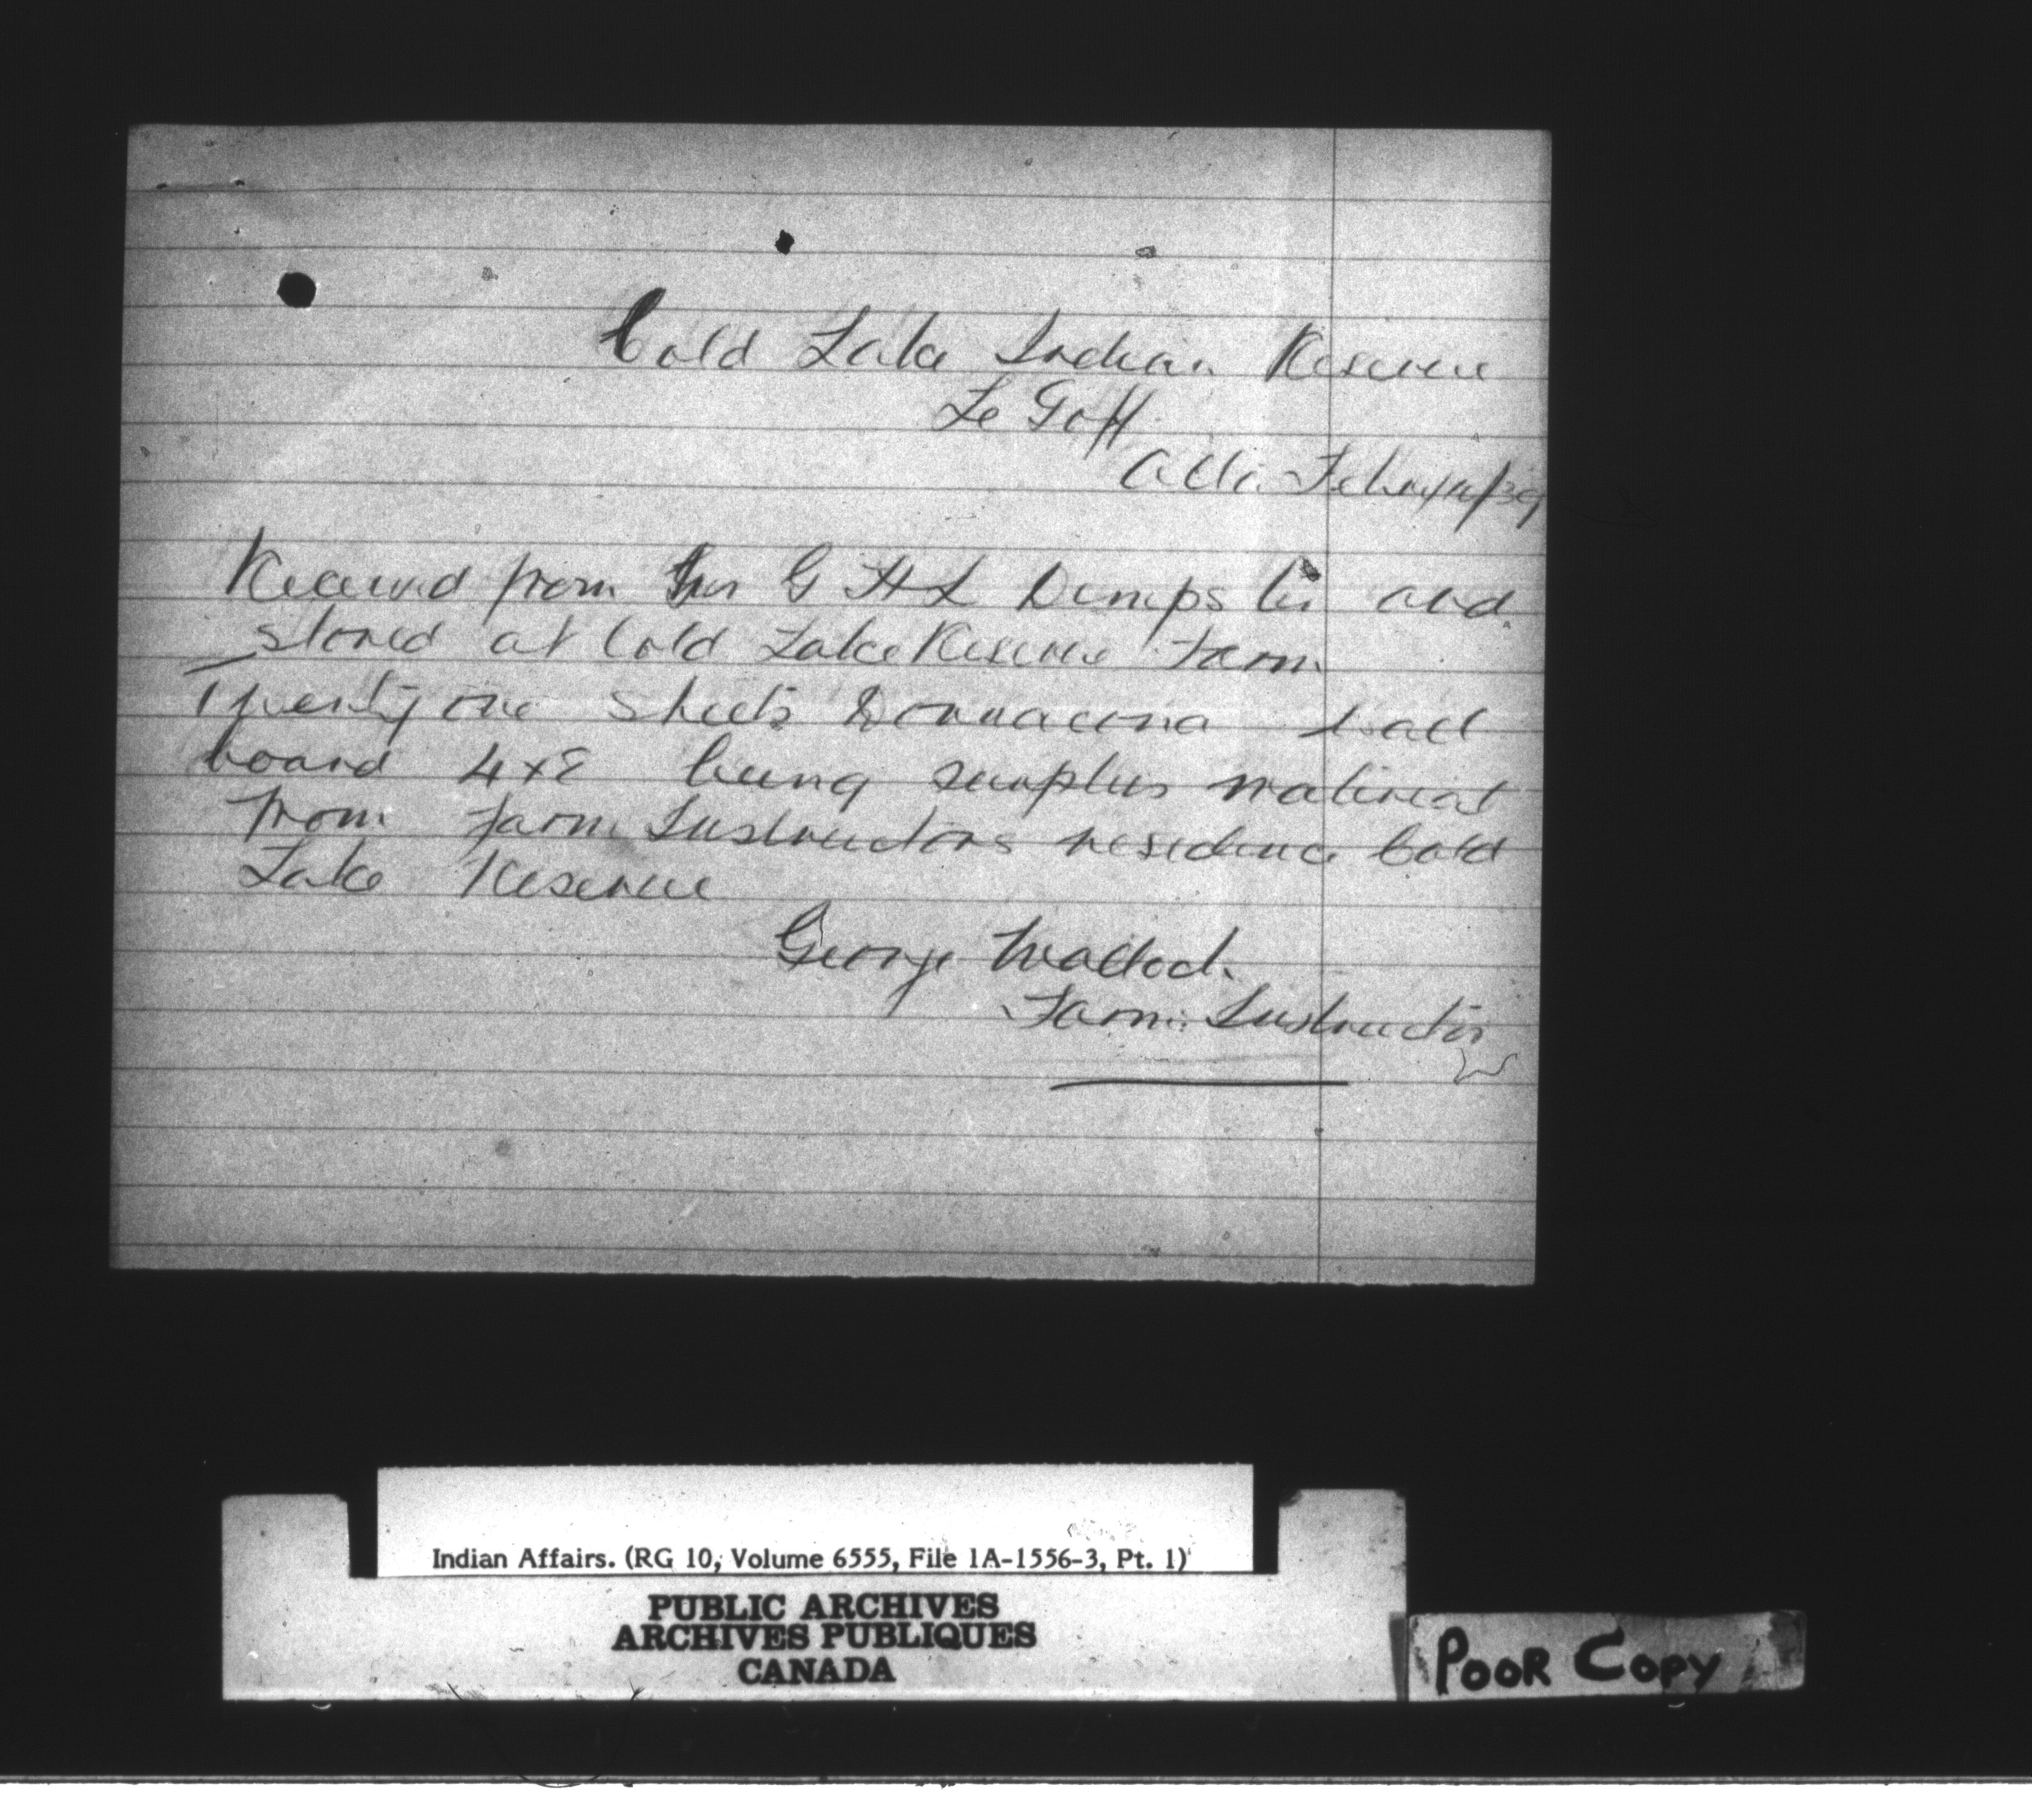 Cold Lake Indian Reserve
Le Goff
Alta
Received from Mr G H L Dempster and
stored at Cold Lake Reserve Farm
Twenty one sheets Donnacona wall
board 4x8 being surplus material
from Farm Instructors residence Cold
Lake Reserve
George
Farm Instructor
Indian Affairs. (RG 10, Volume 6555, File 1A-1556-3, Pt. 1)
PUBLIC ARCHIVES
ARCHIVES PUBLIQUES
CANADA
POOR COPY